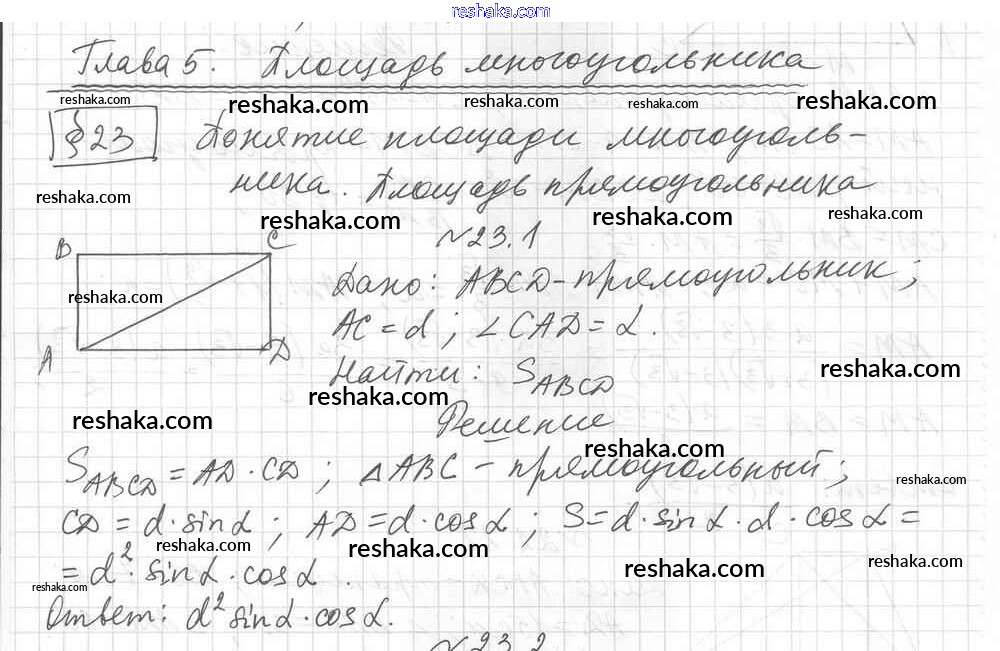 reshaka.com
Глава 5. Площадь многоугольника
reshaka.com reshaka.com reshaka.com reshaka.com reshaka.com
§ 23 Понятие площади многоуголь-
ника. Площадь прямоугольника
reshaka.com reshaka.com reshaka.com reshaka.com
№23.1
B C
Дано: ABCD-прямоугольник;
reshaka.com
AC = d; ∠CAD = α.
A D
Найти: S_ABCD
reshaka.com reshaka.com
Решение
reshaka.com reshaka.com
S_ABCD = AD · CD; △ABC - прямоугольный;
reshaka.com
CD = d · sin α; AD = d · cos α; S = d · sin α · d · cos α =
reshaka.com reshaka.com
= d² · sin α · cos α.
reshaka.com reshaka.com reshaka.com
Ответ: d² sin α · cos α.
№23.2